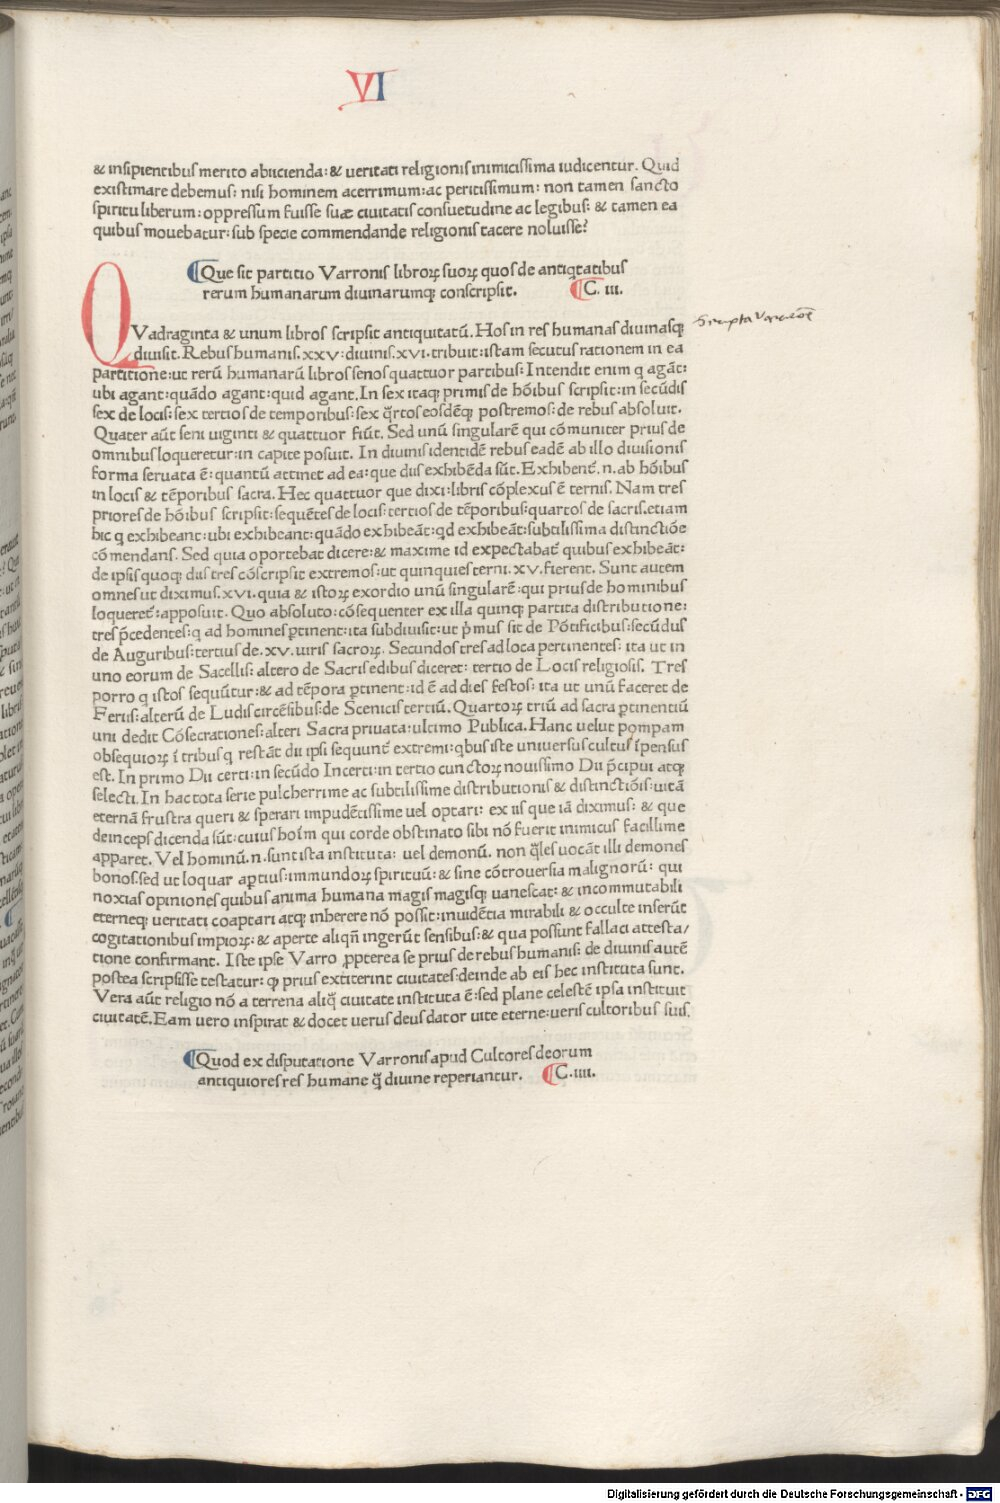 VI
& insipientibus merito abiicienda: & ueritati religionis inimicissima iudicentur. Quid
existimare debemus: nisi hominem acerrimum: ac peritissimum: non tamen sancto
spiritu liberum: oppressum fuisse suæ ciuitatis consuetudine ac legibus: & tamen ea
quibus mouebatur: sub specie commendande religionis tacere noluisse?
¶Que sit partitio Varronis libroꝝ suoꝝ quos de antiq̇tatibus
rerum humanarum diuinarumqꝫ conscripsit. ¶C. iii.
QVadraginta & unum libros scripsit antiquitatū. Hos in res humanas diuinasqꝫ
Scripta Varronis
diuisit. Rebus humanis. xxv: diuinis. xvi. tribuit: istam secutus rationem in ea
partitione: ut rerū humanarū libros senos quattuor partibus: Intendit enim q agāt:
ubi agant: quādo agant: quid agant. In sex itaqꝫ primis de hōibus scripsit: in secūdis
sex de locis: sex tertios de temporibus: sex q̄rtos eosdēqꝫ postremos: de rebus absoluit.
Quater aūt seni uiginti & quattuor fiūt. Sed unū singularē qui cōmuniter prius de
omnibus loqueretur: in capite posuit. In diuinis identidē rebus eadē ab illo diuisionis
forma seruata ē: quantū attinet ad ea: que diis exhibēda sūt. Exhibent̄. n. ab hōibus
in locis & tēporibus sacra. Hec quattuor que dixi: libris cōplexus ē ternis. Nam tres
priores de hōibus scripsit: sequētes de locis: tertios de tēporibus: quartos de sacris. etiam
hic q exhibeant: ubi exhibeant: quādo exhibeāt: qd exhibeāt: subtilissima distinctiōe
cōmendans. Sed quia oportebat dicere: & maxime id expectabat̄ quibus exhibeāt:
de ipsis quoqꝫ diis tres cōscripsit extremos: ut quinquies terni. xv. fierent. Sunt autem
omnes ut diximus. xvi. quia & istoꝝ exordio unū singularē: qui prius de hominibus
loqueret̄: apposuit. Quo absoluto: cōsequenter ex illa quinqꝫ partita distributione:
tres p̄cedentes: q ad homines ꝑtinent: ita subdiuisit: ut p̄mus sit de Pōtificibus: secūdus
de Auguribus: tertius de. xv. uiris sacroꝝ. Secundos tres ad loca pertinentes: ita ut in
uno eorum de Sacellis: altero de Sacris edibus diceret: tertio de Locis religiosis. Tres
porro q istos sequūtur: & ad tēpora ꝑtinent: id ē ad dies festos: ita ut unū faceret de
Feriis: alterū de Ludis circēsibus: de Scenicis tertiū. Quartoꝝ triū ad sacra ꝑtinentiū
uni dedit Cōsecrationes: alteri Sacra priuata: ultimo Publica. Hanc uelut pompam
obsequioꝝ ī tribus q restāt dii ipsi sequunt̄ extremi: qbus iste uniuersus cultus īpensus
est. In primo Dii certi: in secūdo Incerti: in tertio cunctoꝝ nouissimo Dii p̄cipui atqꝫ
selecti. In hac tota serie pulcherrime ac subtilissime distributionis & distinctiōis: uitā
eternā frustra queri & sperari impudētissime uel optari: ex iis que iā diximus: & que
deinceps dicenda sūt: cuius hoīm qui corde obstinato sibi nō fuerit inimicus facillime
apparet. Vel hominū. n. sunt ista instituta: uel demonū. non q̄les uocāt illi demones
bonos. sed ut loquar aꝑtius: immundoꝝ spirituū: & sine cōtrouersia malignorū: qui
noxias opiniones quibus anima humana magis magisqꝫ uanescat: & incommutabili
eterneqꝫ ueritati coaptari atqꝫ inherere nō possit: inuidētia mirabili & occulte inserūt
cogitationibus impioꝝ: & aperte aliqñ ingerūt sensibus: & qua possunt fallaci attesta/
tione confirmant. Iste ipse Varro ꝓpterea se prius de rebus humanis: de diuinis autē
postea scripsisse testatur: ꝙ prius extiterint ciuitates: deinde ab eis hec instituta sunt.
Vera aūt religio nō a terrena aliq̄ ciuitate instituta ē: sed plane celestē ipsa instituit
ciuitatē. Eam uero inspirat & docet uerus deus dator uite eterne: ueris cultoribus suis.
¶Quod ex disputatione Varronis apud Cultores deorum
antiquiores res humane q̄ diuine reperiantur. ¶C. iiii.
Digitalisierung gefördert durch die Deutsche Forschungsgemeinschaft - DFG